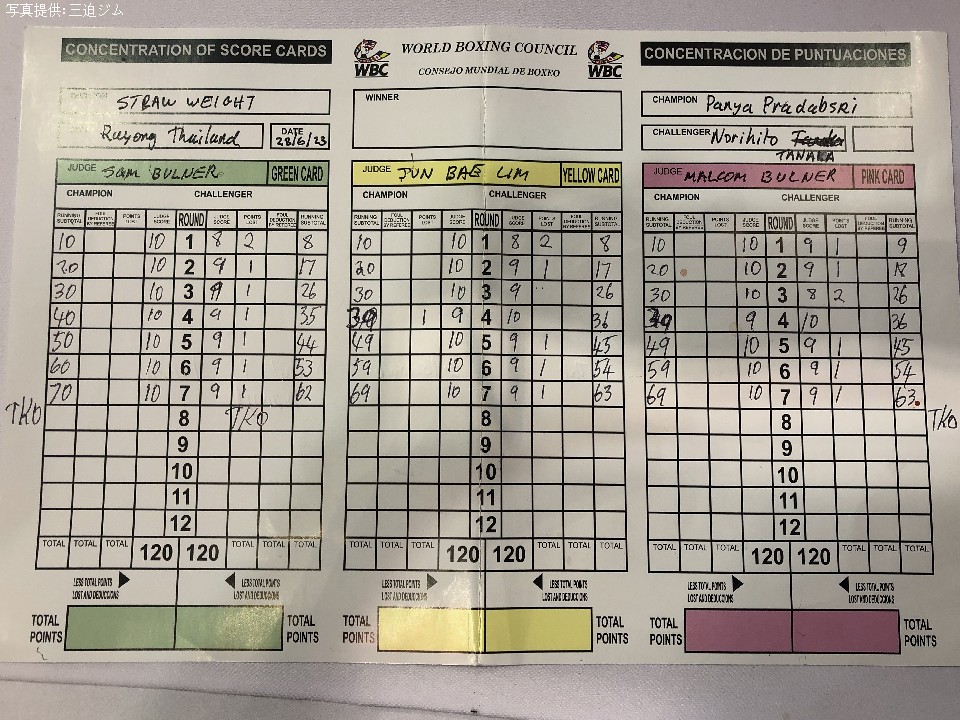 写真提供:三迫ジム
CONCENTRATION OF SCORE CARDS
WBC
WORLD BOXING COUNCIL
CONSEJO MUNDIAL DE BOXEO
WBC
CONCENTRACION DE PUNTUACIONES
STRAW WEIGHT
WINNER
CHAMPION Panya Pradabsri
Rayong Thailand DATE 28/6/23
CHALLENGER Norihito
TANAKA
JUDGE SAM BULNER GREEN CARD
JUDGE JUN BAE LIM YELLOW CARD
JUDGE MALCOM BULNER PINK CARD
CHAMPION CHALLENGER
CHAMPION CHALLENGER
CHAMPION CHALLENGER
RUNNING SUBTOTAL FOUL DEDUCTION BY REFEREE POINTS LOST JUDGE SCORE ROUND JUDGE SCORE POINTS LOST FOUL DEDUCTION BY REFEREE RUNNING SUBTOTAL
RUNNING SUBTOTAL FOUL DEDUCTION BY REFEREE POINTS LOST JUDGE SCORE ROUND JUDGE SCORE POINTS LOST FOUL DEDUCTION BY REFEREE RUNNING SUBTOTAL
RUNNING SUBTOTAL FOUL DEDUCTION BY REFEREE POINTS LOST JUDGE SCORE ROUND JUDGE SCORE POINTS LOST FOUL DEDUCTION BY REFEREE RUNNING SUBTOTAL
10 10 1 8 2 8 10 10 1 8 2 8 10 10 1 9 1 9
20 10 2 9 1 17 20 10 2 9 1 17 20 10 2 9 1 18
30 10 3 9 1 26 30 10 3 9 26 30 10 3 8 2 26
40 10 4 9 1 35 39 1 9 4 10 36 39 9 4 10 36
50 10 5 9 1 44 49 10 5 9 1 45 49 10 5 9 1 45
60 10 6 9 1 53 59 10 6 9 1 54 59 10 6 9 1 54
70 10 7 9 1 62 69 10 7 9 1 63 69 10 7 9 1 63
TKO 8 TKO 8 8 TKO
9 9 9
10 10 10
11 11 11
12 12 12
TOTAL TOTAL TOTAL 120 120 TOTAL TOTAL TOTAL
TOTAL TOTAL TOTAL 120 120 TOTAL TOTAL TOTAL
TOTAL TOTAL TOTAL 120 120 TOTAL TOTAL TOTAL
LESS TOTAL POINTS LOST AND DEDUCCIONS LESS TOTAL POINTS LOST AND DEDUCCIONS
LESS TOTAL POINTS LOST AND DEDUCCIONS LESS TOTAL POINTS LOST AND DEDUCCIONS
LESS TOTAL POINTS LOST AND DEDUCCIONS LESS TOTAL POINTS LOST AND DEDUCCIONS
TOTAL POINTS TOTAL POINTS
TOTAL POINTS TOTAL POINTS
TOTAL POINTS TOTAL POINTS